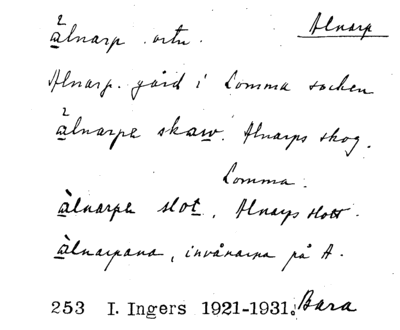 Alnarp
2
àlnarp ortn.
Alnarp. gård i Lomma socken
2
àlnarps skaw. Alnarps skog.
Lomma.
àlnarps slot, Alnarps slott.
àlnarpana, invånarna på A.
253 I. Ingers 1921-1931. Bara